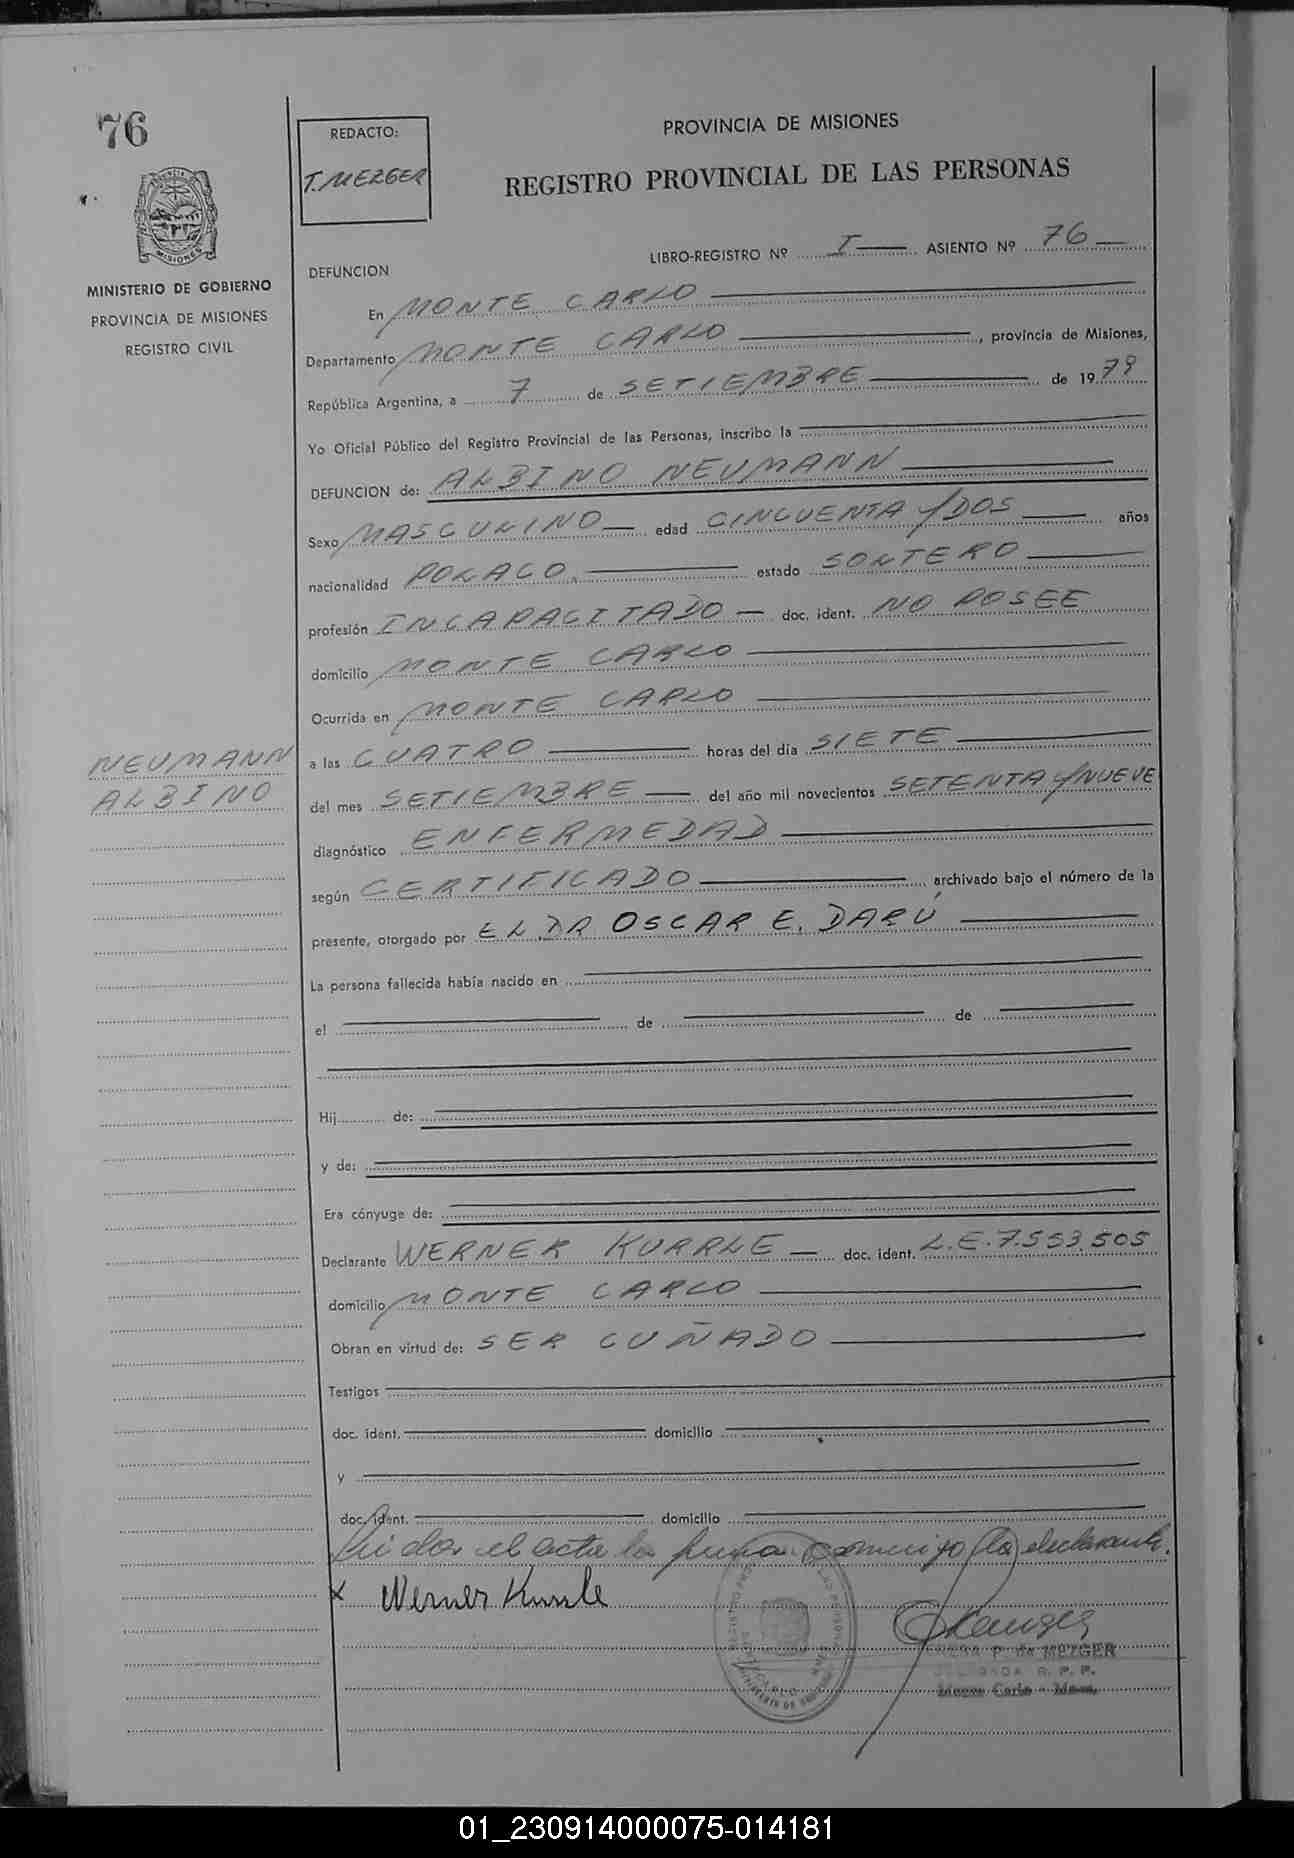 76
REDACTO:
T. MEZGER
PROVINCIA DE MISIONES
REGISTRO PROVINCIAL DE LAS PERSONAS
MISIONES
MINISTERIO DE GOBIERNO
PROVINCIA DE MISIONES
REGISTRO CIVIL
LIBRO-REGISTRO Nº I ASIENTO Nº 76
DEFUNCION
En MONTE CARLO
Departamento MONTE CARLO, provincia de Misiones,
República Argentina, a 7 de SETIEMBRE de 1979
Yo Oficial Público del Registro Provincial de las Personas, inscribo la
DEFUNCION de: ALBINO NEUMANN
Sexo MASCULINO edad CINCUENTA Y DOS años
nacionalidad POLACO estado SOLTERO
profesión INCAPACITADO doc. ident. NO POSEE
domicilio MONTE CARLO
Ocurrida en MONTE CARLO
NEUMANN
ALBINO
a las CUATRO horas del día SIETE
del mes SETIEMBRE del año mil novecientos SETENTA Y NUEVE
diagnóstico ENFERMEDAD
según CERTIFICADO archivado bajo el número de la
presente, otorgado por EL DR OSCAR E. DARÚ
La persona fallecida había nacido en
el de de
Hij de:
y de:
Era cónyuge de:
Declarante WERNER KURRLE doc. ident. L.E. 7.553.505
domicilio MONTE CARLO
Obran en virtud de: SER CUÑADO
Testigos
doc. ident. domicilio
y
doc. ident. domicilio
el acta la firma conmigo (la) declarante.
x Werner Kurrle
P. de MEZGER
R. P. P.
Monte Carlo - Mnes.
01_230914000075-014181